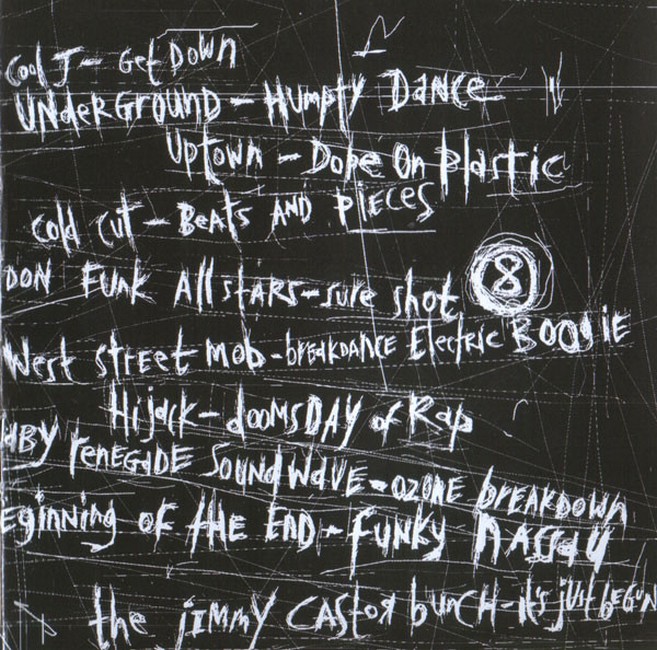 Cool J - Get Down
UNDERGROUND - Humpty Dance
Uptown - Dope On Plastic
Cold Cut - Beats AND PIECES
DON FUNK AllstARS - sure shot
8
West street Mob - breakDANCE Electric BOOGIE
Hijack - doomsDAY of Rap
ABY reNEGADE SoundWAVE - OZONE breAKDOWN
eginning of the End - funky NASSAU
the jimmy CAStor bunCH - it's just beGUN